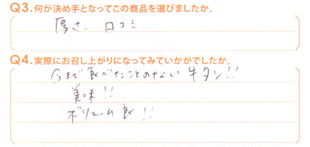 Q3.何が決め手となってこの商品を選びましたか。
厚さ、口コミ
Q4.実際にお召し上がりになってみていかがでしたか。
今まで食べたことのない牛タン!!
美味!!
ボリューム良!!